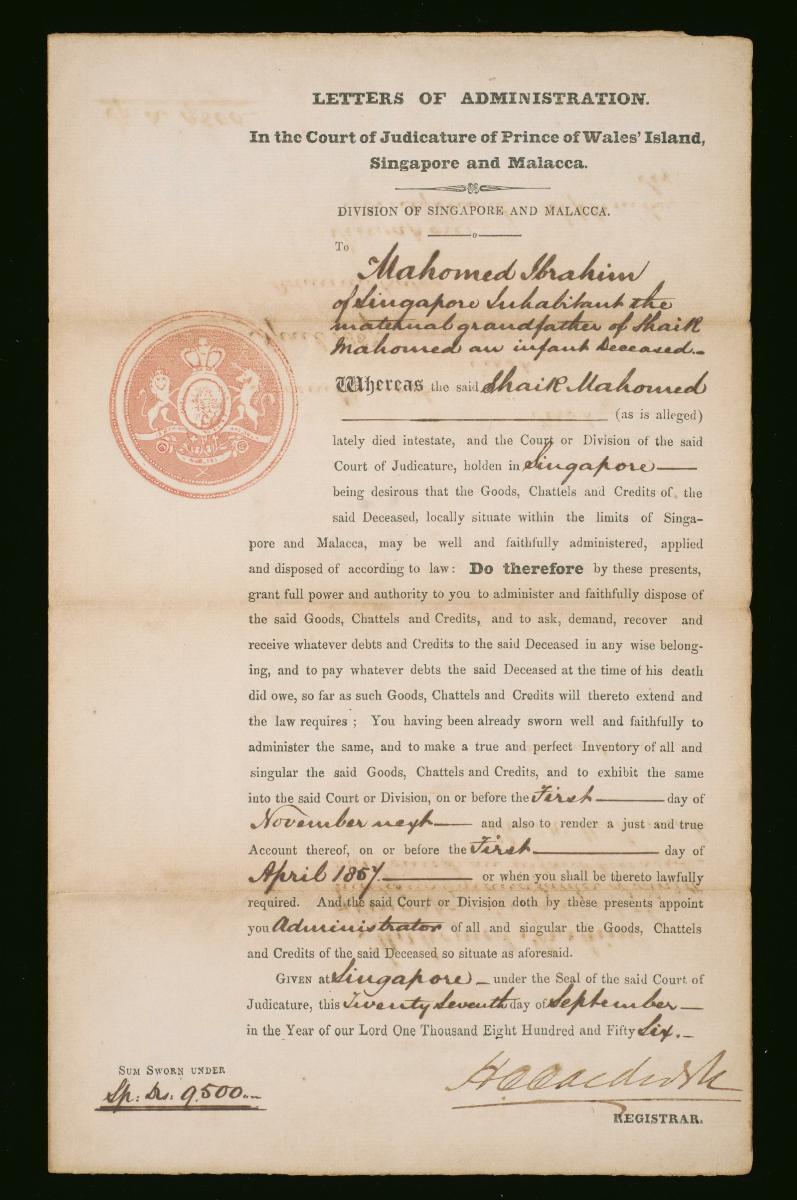 LETTERS OF ADMINISTRATION.
In the Court of Judicature of Prince of Wales' Island,
Singapore and Malacca.
DIVISION OF SINGAPORE AND MALACCA.
To
Mahomed Ibrahim
of Singapore Inhabitant the
maternal grandfather of Shaik
Mahomed an infant Deceased.
Whereas the said Shaik Mahomed
(as is alleged)
lately died intestate, and the Court or Division of the said
Court of Judicature, holden in Singapore
being desirous that the Goods, Chattels and Credits of the
said Deceased, locally situate within the limits of Singa-
pore and Malacca, may be well and faithfully administered, applied
and disposed of according to law: Do therefore by these presents,
grant full power and authority to you to administer and faithfully dispose of
the said Goods, Chattels and Credits, and to ask, demand, recover and
receive whatever debts and Credits to the said Deceased in any wise belong-
ing, and to pay whatever debts the said Deceased at the time of his death
did owe, so far as such Goods, Chattels and Credits will thereto extend and
the law requires ; You having been already sworn well and faithfully to
administer the same, and to make a true and perfect Inventory of all and
singular the said Goods, Chattels and Credits, and to exhibit the same
into the said Court or Division, on or before the First day of
November next and also to render a just and true
Account thereof, on or before the First day of
April 1857. or when you shall be thereto lawfully
required. And the said Court or Division doth by these presents appoint
you Administrator of all and singular the Goods, Chattels
and Credits of the said Deceased so situate as aforesaid.
GIVEN at Singapore under the Seal of the said Court of
Judicature, this Twenty Seventh day of September
in the Year of our Lord One Thousand Eight Hundred and Fifty Six.
SUM SWORN UNDER
Sp: Drs: 9,500
REGISTRAR.